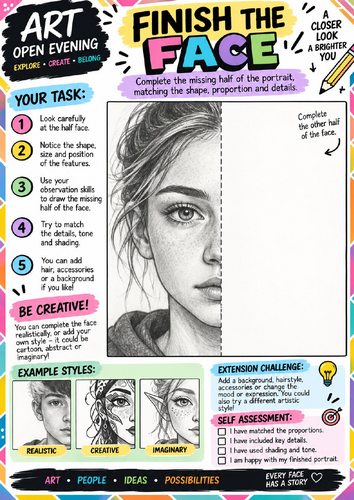 ART
OPEN EVENING
EXPLORE • CREATE • BELONG
FINISH THE
FACE
A
CLOSER
LOOK
A BRIGHTER
YOU
Complete the missing half of the portrait,
matching the shape, proportion and details.
YOUR TASK:
1 Look carefully
at the half face.
2 Notice the shape,
size and position
of the features.
3 Use your
observation skills
to draw the missing
half of the face.
4 Try to match
the details, tone
and shading.
5 You can add
hair, accessories
or a background
if you like!
Complete
the other half
of the face.
BE CREATIVE!
You can complete the face
realistically, or add your
own style – it could be
cartoon, abstract or
imaginary!
EXAMPLE STYLES:
REALISTIC
CREATIVE
IMAGINARY
EXTENSION CHALLENGE:
Add a background, hairstyle,
accessories or change the
mood or expression. You could
also try a different artistic
style!
SELF ASSESSMENT:
I have matched the proportions.
I have included key details.
I have used shading and tone.
I am happy with my finished portrait.
ART • PEOPLE • IDEAS • POSSIBILITIES
EVERY FACE
HAS A STORY